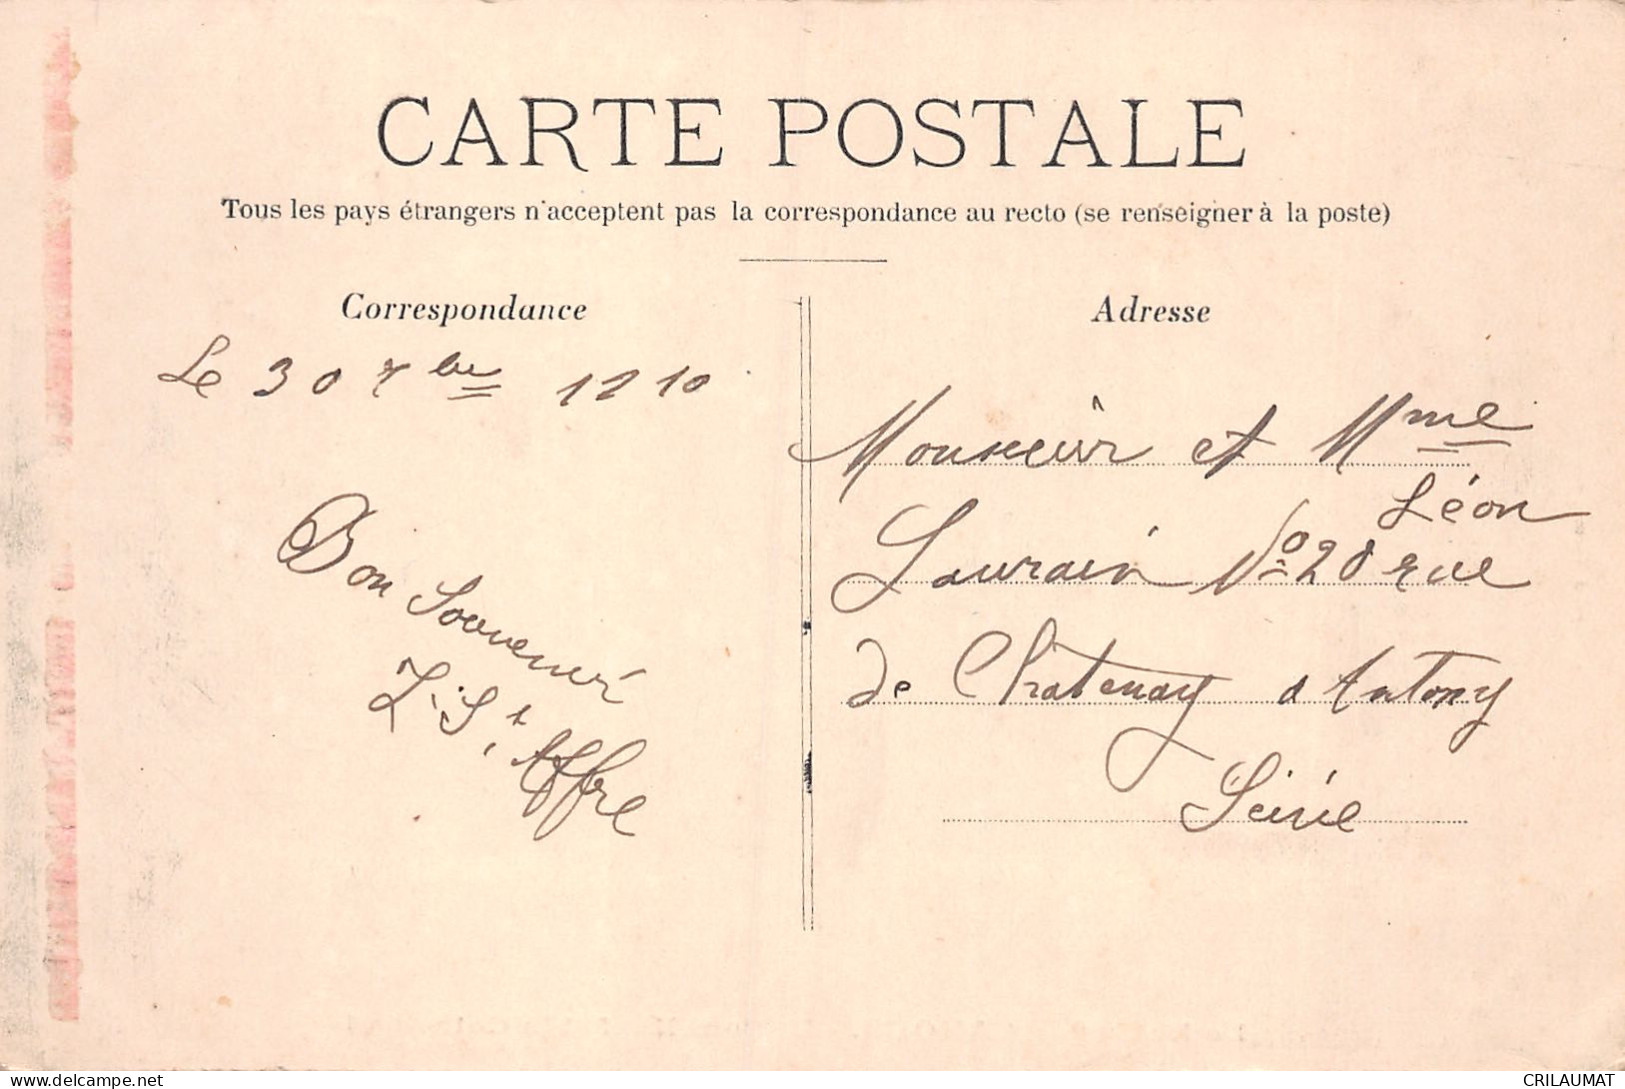 CARTE POSTALE
Tous les pays étrangers n'acceptent pas la correspondance au recto (se renseigner à la poste)
Correspondance
Le 30 7bre 1910
Bon Souvenir
L. St Affre
Adresse
Monsieur et Mme
Léon
Laurain No 28 rue
de Chatenay a Antony
Seine
CRILAUMAT